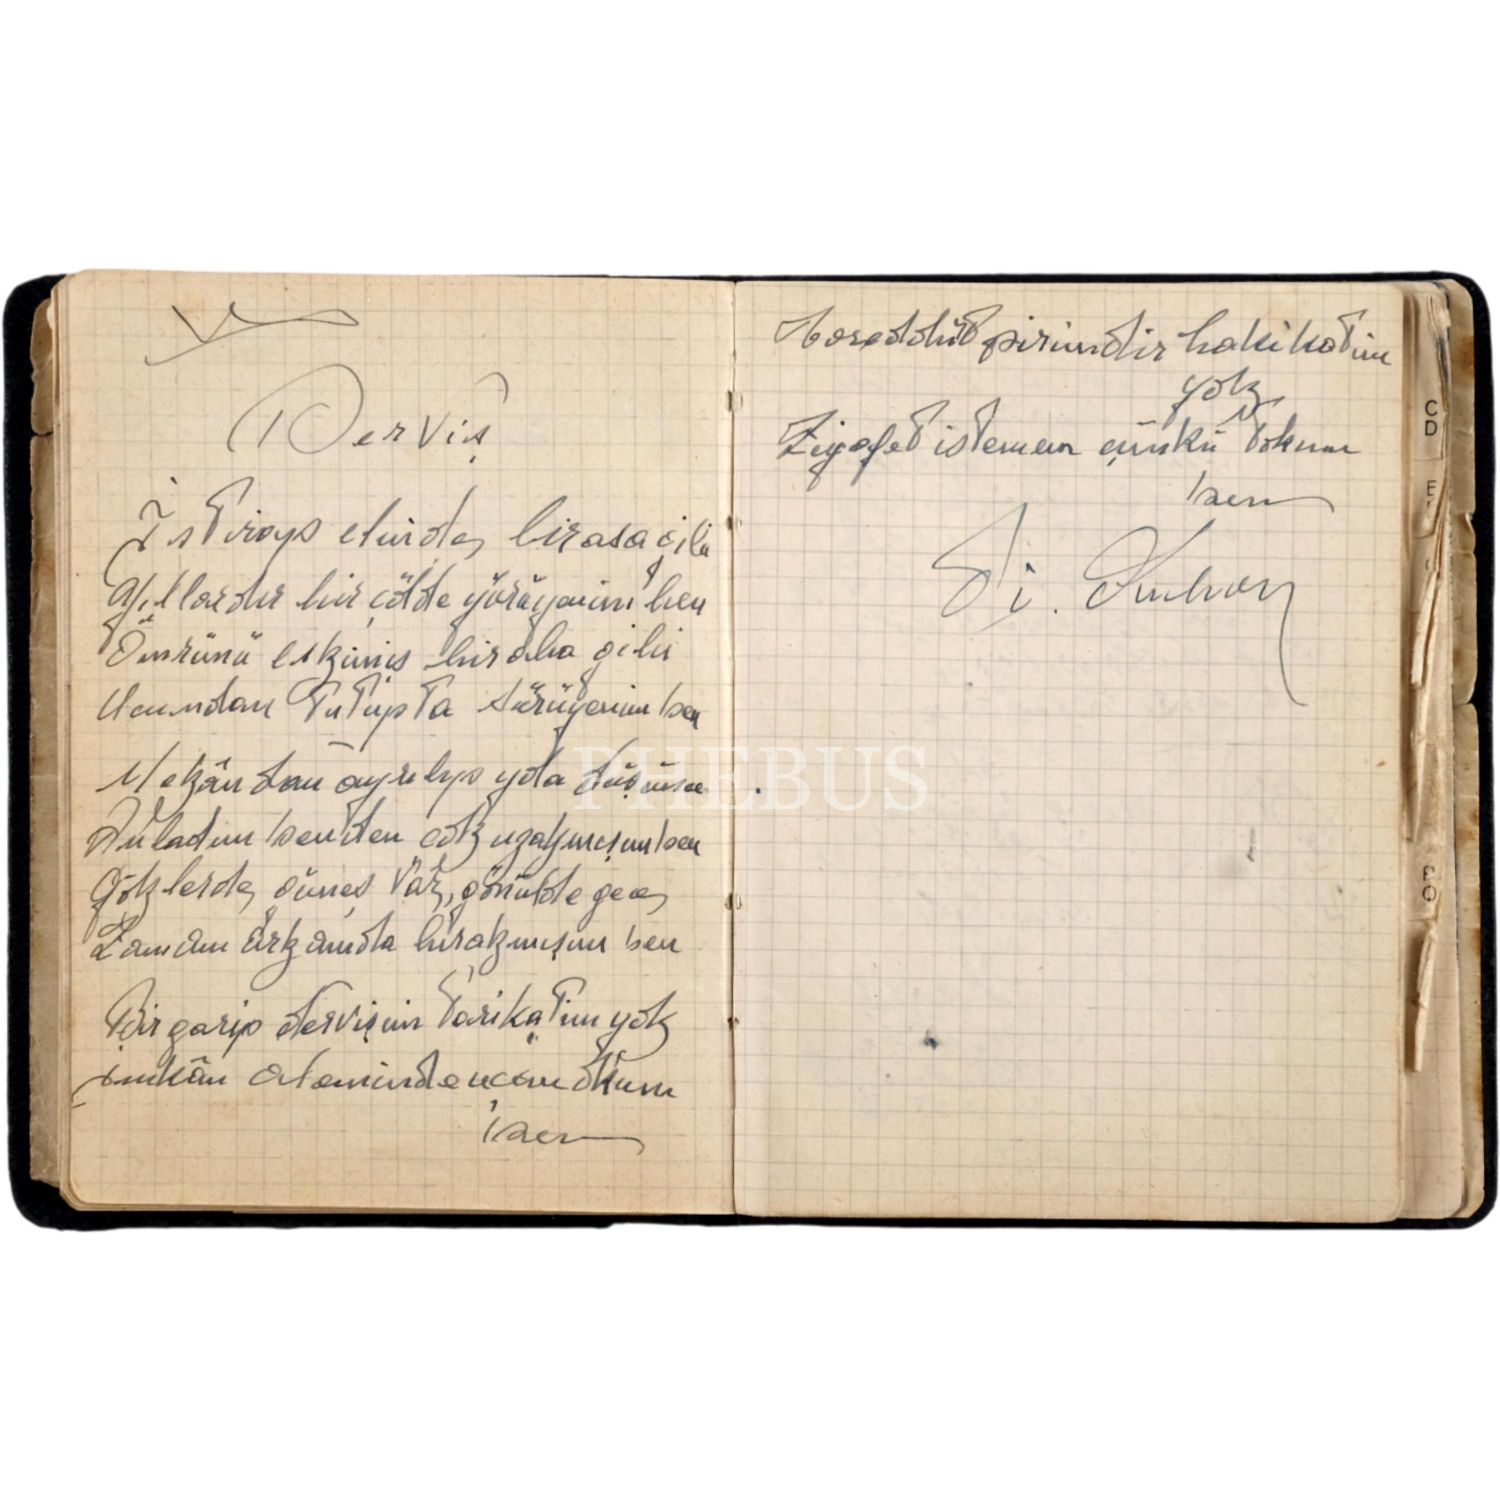 Derviş
Istirap elinde, bir asa gibi
Yıllardır bir çölde yürüyorum ben
Ömrünü eskimiş bir aba gibi
Ucundan tutupta sürüyorum ben
Mekândan ayrılıp yola düşünce
Anladım benden çok uzakmışım ben
Göklerde, güneş var, gönülde gece,
Zamanı arkamda bırakmışım ben
Bir garip dervişim tarikatım yok
imkân aleminden
ben
Tereddüt pirimdir hakikatim
yok
Ziyafet istemem çünkü tokum
ben
PHEBUS
C
D
E